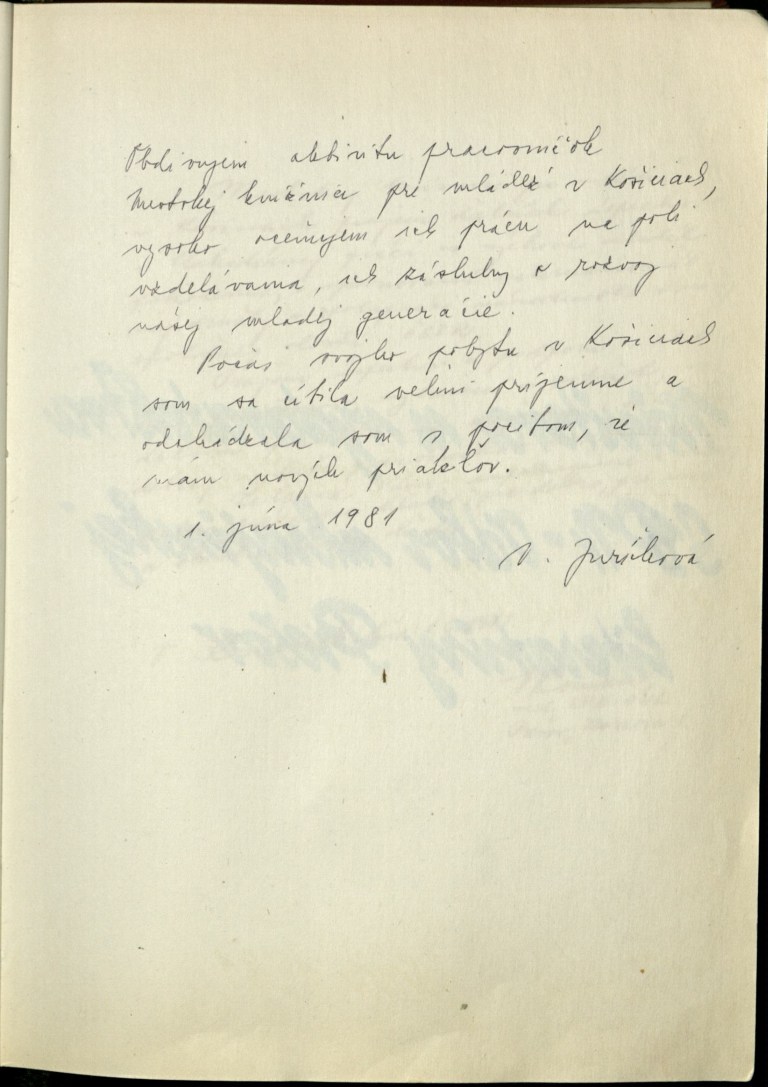 Obdivujem aktivitu pracovníčok
Mestskej knižnice pre mládež v Košiciach,
vysoko oceňujem ich prácu na poli
vzdelávania, ich zásluhy o rozvoj
našej mladej generácie.
Počas svojho pobytu v Košiciach
som sa cítila veľmi príjemne a
odchádzala som s pocitom, že
mám nových priateľov.
1. júna 1981
Juríčková